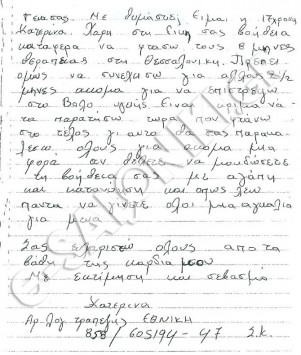 Γειασας. Με θυμαστε; Ειμαι η 17χρονη
Κατερινα Χαρη στη δικη σας βοηθεια
καταφερα να φτασω τους 8 μηνες
θεραπειας στη Θεσσαλονικη. Πρεπει
ομως να συνεχισω για αλλους 2 1/2
μηνες ακομα για να επιστρεψω
στο Βολο υγιης. Ειναι κριμα να
τα παρατησω τωρα που φτανω
στο τελος γι αυτο θα σας παρακα-
λεσω ολους για ακομα μια
φορα αν θελετε να μου δωσετε
τη βοηθεια σας με αγαπη
και κατανοηση και οπως λεω
παντα να γινετε ολοι μια αγκαλια
για μενα
Σας ευχαριστω ολους απο τα
βαθη της καρδια μου
Με εκτιμηση και σεβασμο
Κατερινα
Αρ. Λογ τραπεζης ΕΘΝΙΚΗ
858/605194-47 Σ.Κ.